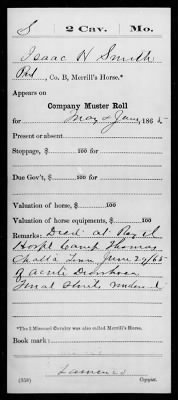 S | 2 Cav. | Mo.
Isaac H Smith
Pvt, Co. B, Merrill's Horse.*
Appears on
Company Muster Roll
for May & June, 1865.
Present or absent
Stoppage, $ 100 for
Due Gov't, $ 100 for
Valuation of horse, $ 100
Valuation of horse equipments, $ 100
Remarks: Died at Post
Hospt Camp Thomas
Chatta Tenn June 29/65
of acute Diarrhoea
Final Stmts
*The 2 Missouri Cavalry was also called Merrill's Horse.
Book mark:
(358) Copyist.